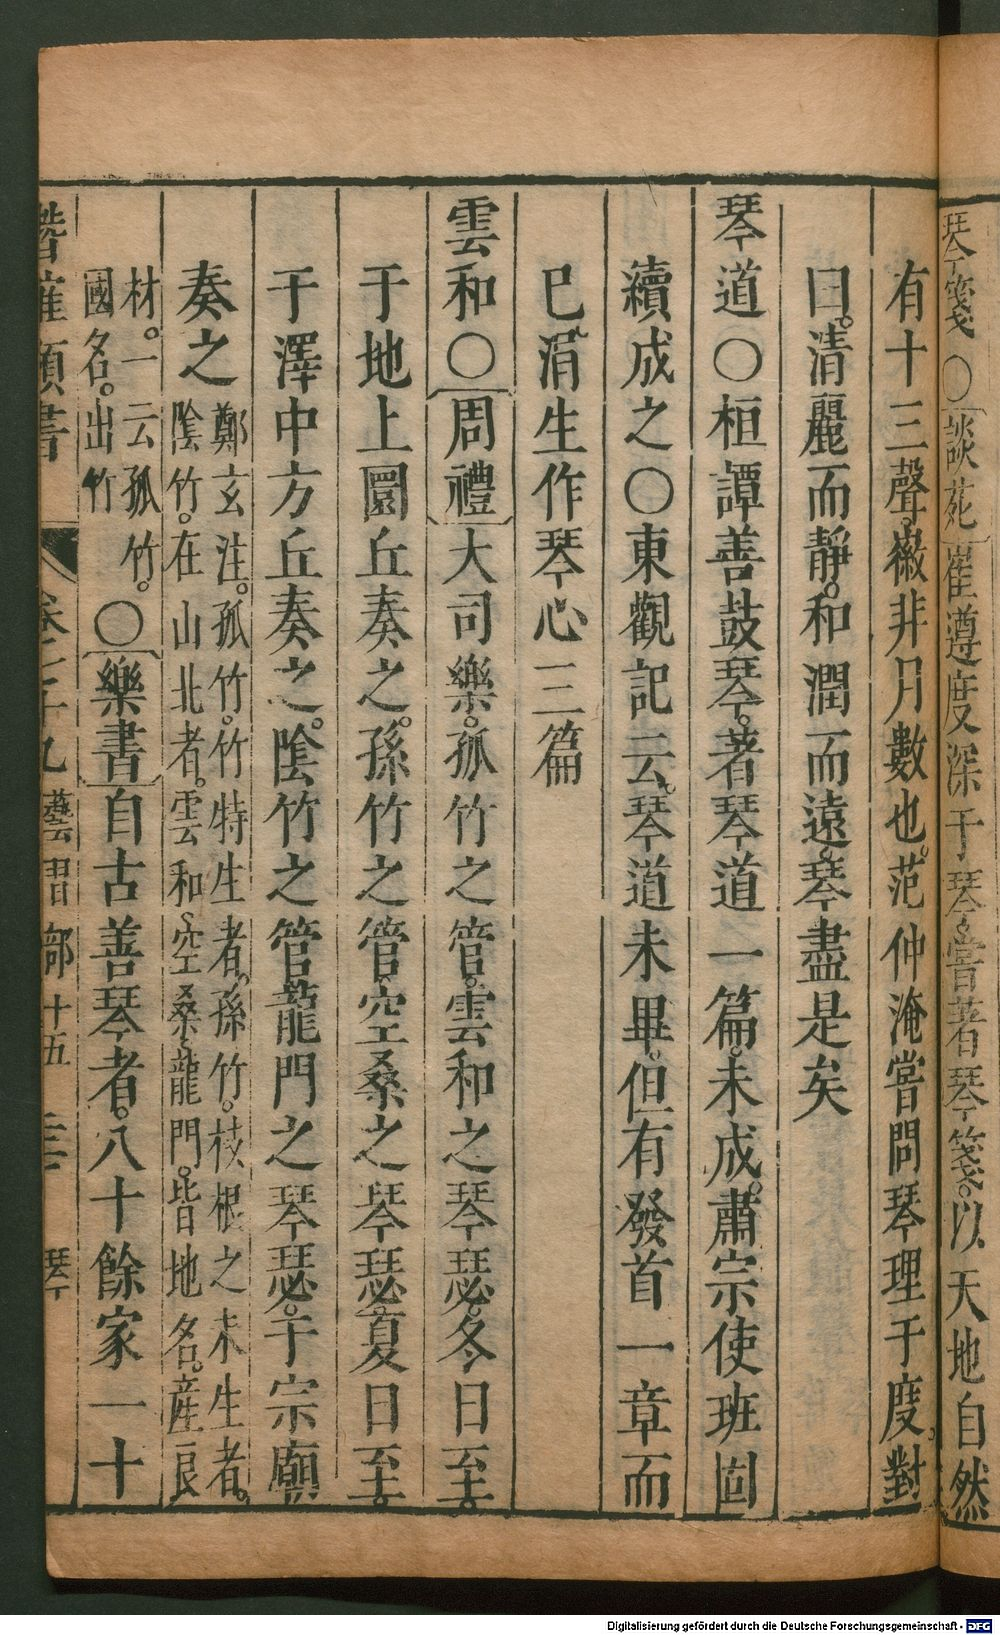 琴箋○談苑崔遵度深于琴嘗著琴箋以天地自然
有十三聲徽非月數也范仲淹嘗問琴理于度對
曰清麗而靜和潤而遠琴盡是矣
琴道○桓譚善鼓琴著琴道一篇未成肅宗使班固
續成之○東觀記云琴道未畢但有發首一章而
已涓生作琴心三篇
雲和○周禮大司樂孤竹之管雲和之琴瑟冬日至
于地上圜丘奏之孫竹之管空桑之琴瑟夏日至
于澤中方丘奏之陰竹之管龍門之琴瑟于宗廟
奏之
鄭玄注孤竹竹特生者孫竹枝根之未生者
陰竹在山北者雲和空桑龍門皆地名產良
材一云孤竹
國名出竹
○樂書自古善琴者八十餘家一十
潛確類書 卷七十九 藝習部十五 琴
Digitalisierung gefördert durch die Deutsche Forschungsgemeinschaft - DFG